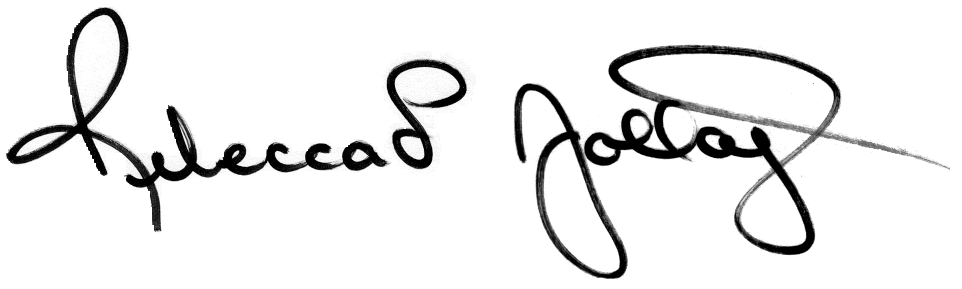 Rebecca Jollay